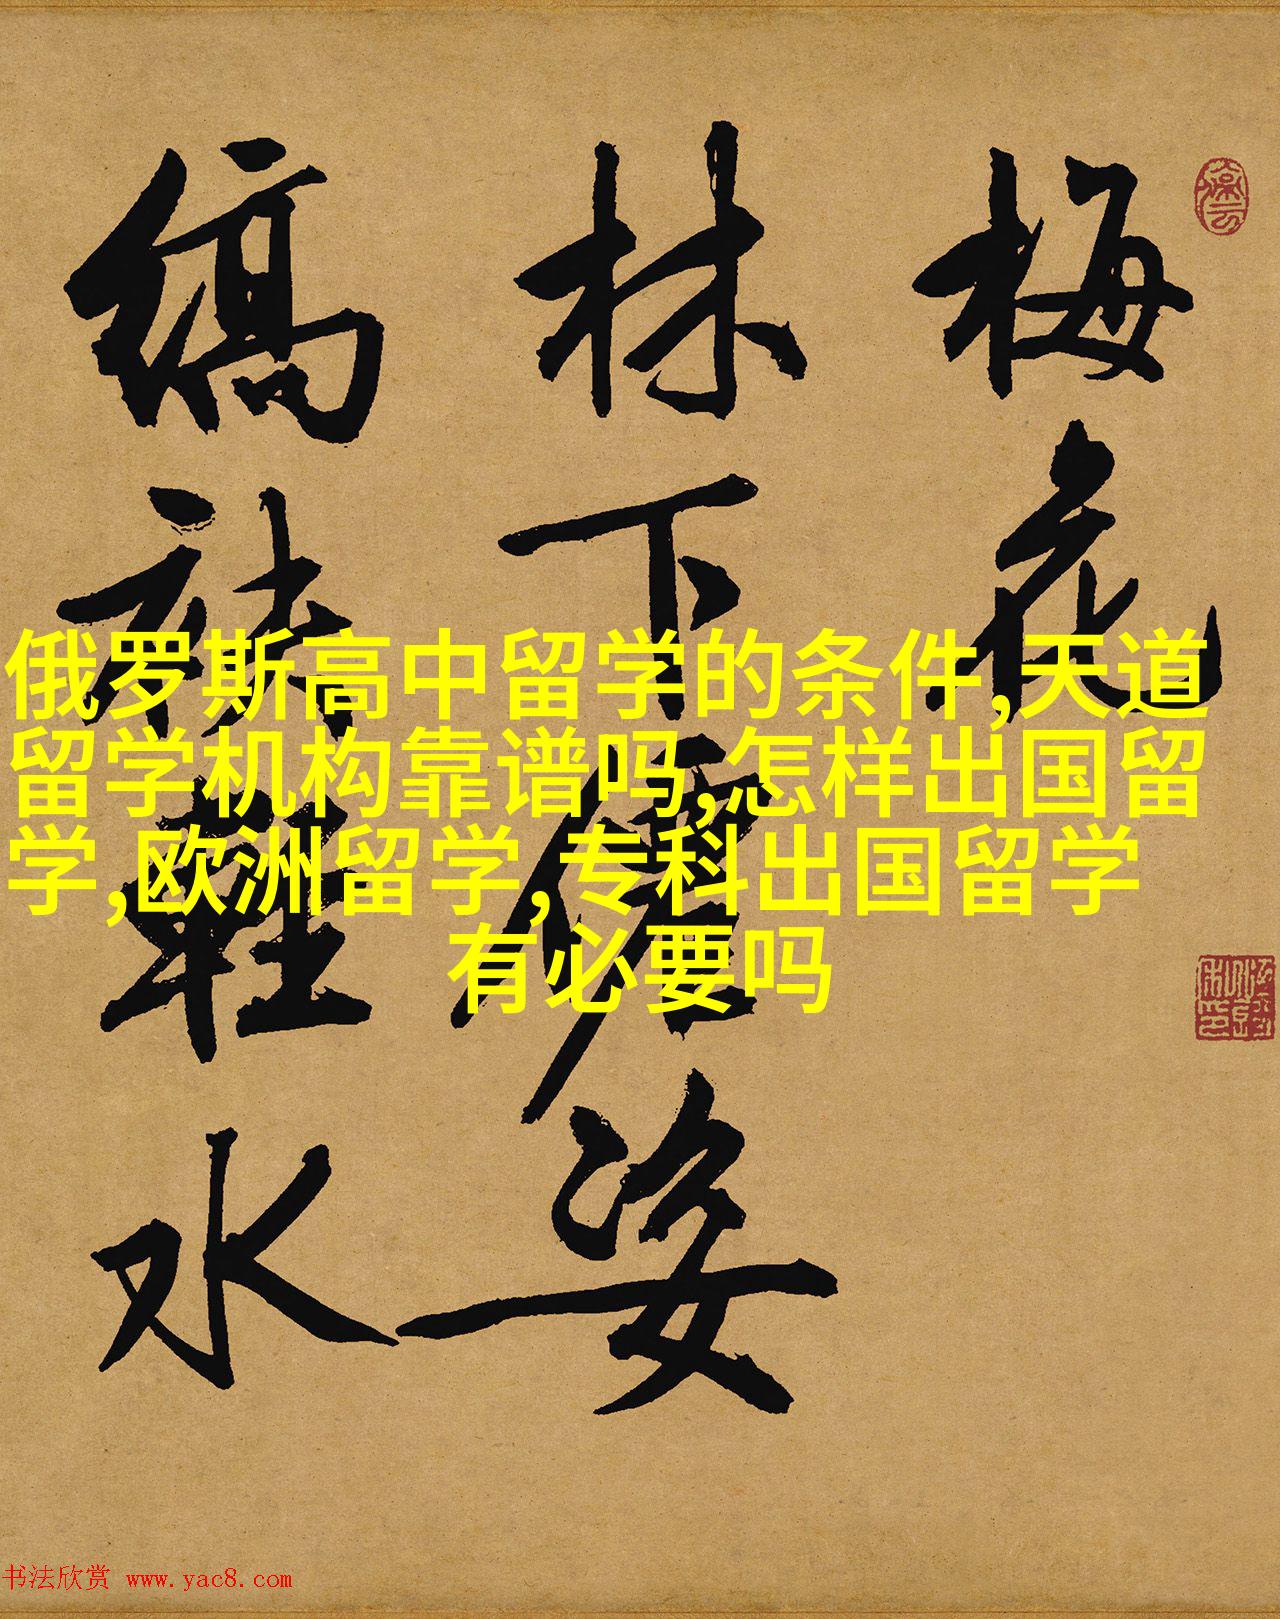 梅花
林下僊姿
縞袂輕水
俄罗斯高中留学的条件,天道
留学机构靠谱吗,怎样出国留
学,欧洲留学,专科出国留学
有必要吗
书法欣赏 www.yac8.com